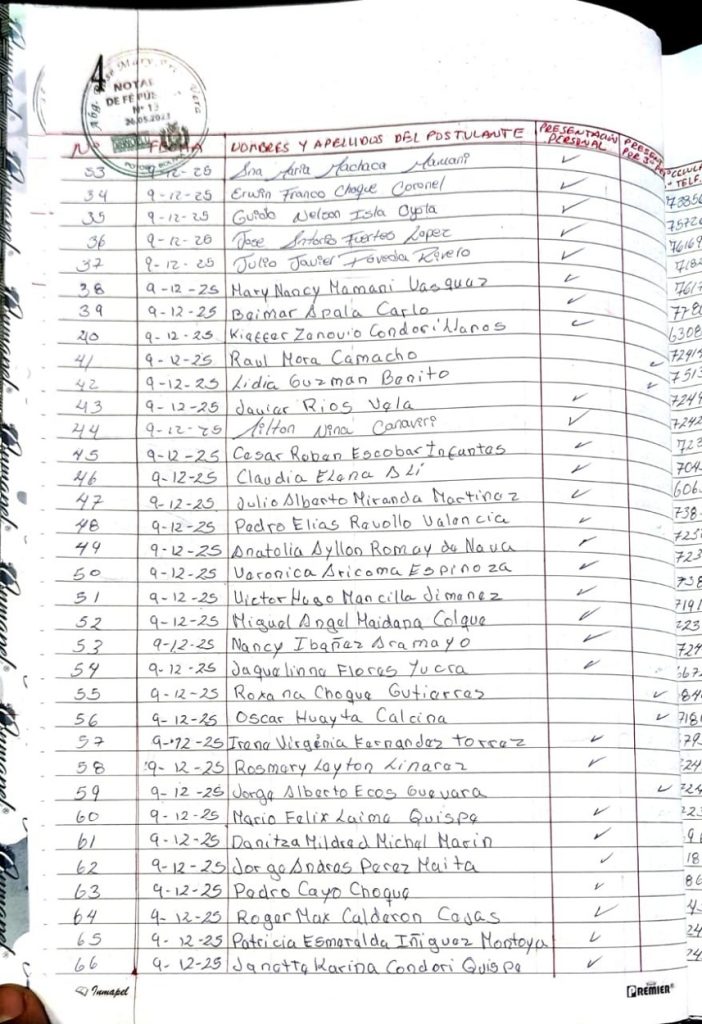 4
Abg. Mary Vera
NOTAR
DE FE PUB
Nº 13
26.05.2021
POTOSI BOLIVIA
Nº FECHA NOMBRES Y APELLIDOS DEL POSTULANTE PRESENTACIÓN PERSONAL PRESEN POR 3º CELULA TELF.
33 9-12-25 Ana Maria Machaca Mamani ✓
34 9-12-25 Erwin Franco Choque Coronel ✓ 73856
35 9-12-25 Guido Nelson Isla Oyola ✓ 75726
36 9-12-25 Jose Antonio Fuertes Lopez ✓ 76169
37 9-12-25 Julio Javier Poveda Rivero ✓ 7182
38 9-12-25 Mary Nancy Mamani Vasquez ✓ 7617
39 9-12-25 Beimar Apala Carlo ✓ 7780
40 9-12-25 Kieffer Zenovio Condori Llanos ✓ 6308
41 9-12-25 Raul Mora Camacho ✓ 72419
42 9-12-25 Lidia Guzman Benito ✓ 7513
43 9-12-25 Javier Rios Vela ✓ 7249
44 9-12-25 Milton Nina Canaviri ✓ 7242
45 9-12-25 Cesar Ruben Escobar Infantes ✓ 723
46 9-12-25 Claudia Elena Ali ✓ 704
47 9-12-25 Julio Alberto Miranda Martinez ✓ 606
48 9-12-25 Pedro Elias Revollo Valencia ✓ 738
49 9-12-25 Anatolia Ayllon Romay de Nava ✓ 725
50 9-12-25 Veronica Aricoma Espinoza ✓ 723
51 9-12-25 Victor Hugo Mancilla Jimenez ✓ 738
52 9-12-25 Miguel Angel Maidana Colque ✓ 7191
53 9-12-25 Nancy Ibañez Aramayo ✓ 724
54 9-12-25 Jaquelinne Flores Yucra ✓ 667
55 9-12-25 Roxana Choque Gutierrez ✓ 84
56 9-12-25 Oscar Huayta Calcina ✓ 718
57 9-12-25 Irene Virgenia Fernandez Torrez ✓ 79
58 9-12-25 Rosmery Leyton Linarez ✓ 24
59 9-12-25 Jorge Alberto Ecos Guevara ✓ 724
60 9-12-25 Mario Felix Laime Quispe ✓
61 9-12-25 Danitza Mildred Michel Marin ✓
62 9-12-25 Jorge Andres Perez Maita ✓ 18
63 9-12-25 Pedro Cayo Choque ✓ 86
64 9-12-25 Roger Max Calderon Casas ✓
65 9-12-25 Patricia Esmeralda Iñiguez Montoya ✓ 24
66 9-12-25 Janette Karina Condori Quispe ✓ 24
Inmapel PREMIER